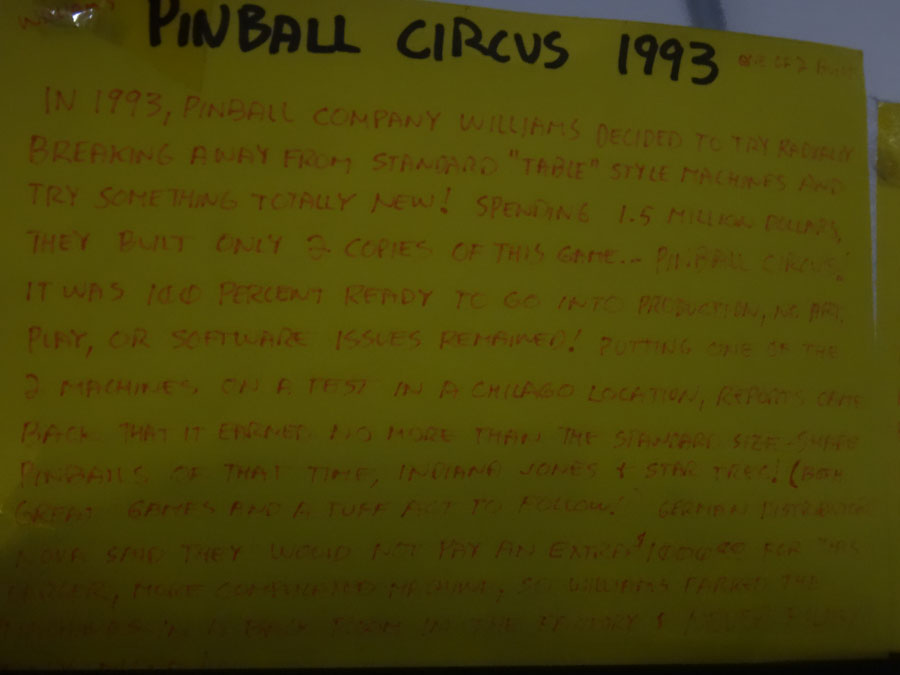 WILLIAMS PINBALL CIRCUS 1993 ONE OF 2 BUILT
IN 1993, PINBALL COMPANY WILLIAMS DECIDED TO TRY RADICALLY
BREAKING AWAY FROM STANDARD "TABLE" STYLE MACHINES AND
TRY SOMETHING TOTALLY NEW! SPENDING 1.5 MILLION DOLLARS,
THEY BUILT ONLY 2 COPIES OF THIS GAME.. PINBALL CIRCUS!
IT WAS 100 PERCENT READY TO GO INTO PRODUCTION, NO ART,
PLAY, OR SOFTWARE ISSUES REMAINED! PUTTING ONE OF THE
2 MACHINES ON A TEST IN A CHICAGO LOCATION, REPORTS CAME
BACK THAT IT EARNED NO MORE THAN THE STANDARD SIZE-SHAPE
PINBALLS OF THAT TIME, INDIANA JONES & STAR TREC! (BOTH
GREAT GAMES AND A TUFF ACT TO FOLLOW!) GERMAN DISTRIBUTOR
NOVA SAID THEY WOULD NOT PAY AN EXTRA $1000.00 FOR THIS
LARGER, MORE COMPLICATED MACHINE, SO WILLIAMS PARKED THE
MACHINES IN A BACK ROOM IN THE FACTORY &